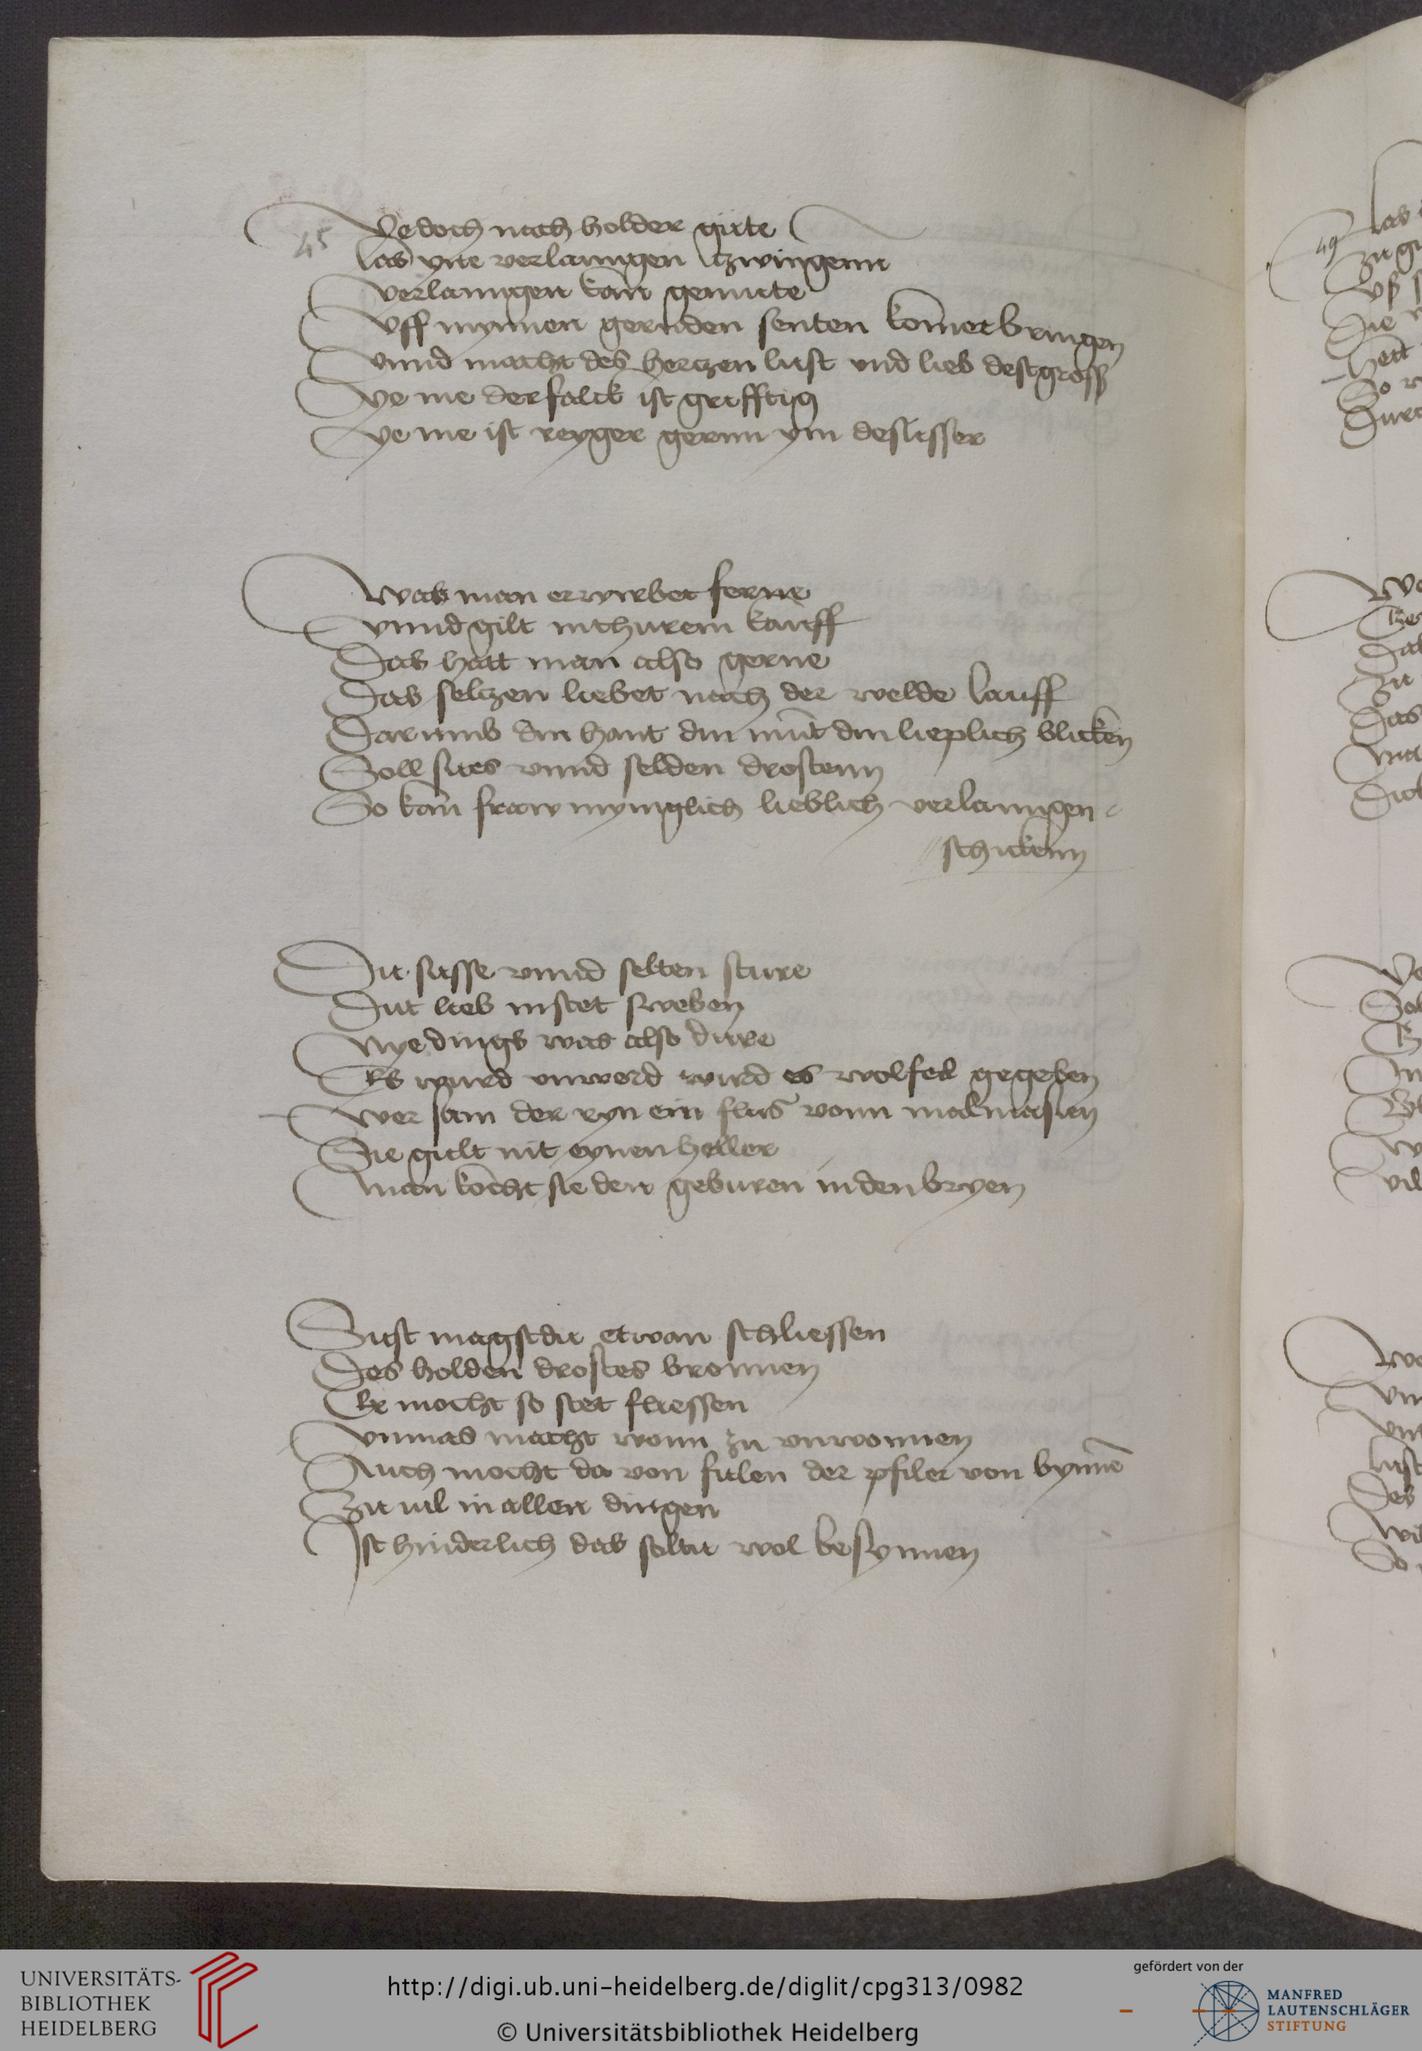 Yedoch nach holder gute
45
las yne verlanngen tzwingenn
verlanngen kan gemute
Vff mynnen gernden senten komer bringen
Vnnd macht des hertzen lust vnd lieb dest grosß
Ye me der falck ist grifftig
Ye me ist reyger gernn ym deslisser
Was man erwirbet ferne
Vnnd gilt in thurem kauff
Das hatt man also gerne
Das seltzen liebet nach der welde lauff
Darumb din hant din munt din lieplich blicken
Soll sites vnnd selden drostenn
So kan fraw mynnglich lieblich verlanngen
schickenn
Dit susse vnnd selten sture
Dut lieb in stet sweben
Nye dings was also dure
Es wurd vnwerd wurd es wolfeil gegeben
Wer sam der ryn ein flus vonn malmasien
Sie gult nit eynen heller
Man kocht sie den geburen in den bryen
Sust magstdu etwan schliessen
Des holden drostes bronnen
Er mocht so stet fliessen
Vnmas macht wonn zu vnwonnen
Auch mocht da von fulen der pfiler von bynnen
Zu uil in allen dingen
Ist hinderlich das soltu wol besynnen
49
UNIVERSITÄTS-
BIBLIOTHEK
HEIDELBERG
http://digi.ub.uni-heidelberg.de/diglit/cpg313/0982
© Universitätsbibliothek Heidelberg
gefördert von der
MANFRED
LAUTENSCHLÄGER
STIFTUNG